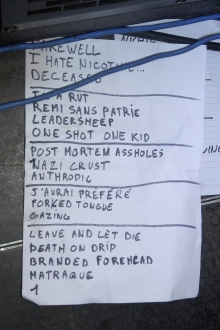 FAREWELL
I HATE NICOTINE...
DECEASED
IN A RUT
REMI SANS PATRIE
LEADERSHEEP
ONE SHOT ONE KID
POST MORTEM ASSHOLES
NAZI CRUST
ANTHROPIC
J'AURAI PRÉFÉRÉ
FORKED TONGUE
GAZING
LEAVE AND LET DIE
DEATH ON DRIP
BRANDED FOREHEAD
MATRAQUE
1